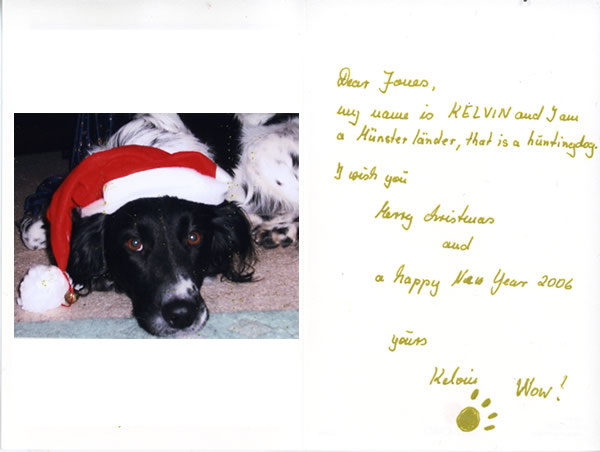 Dear Jones,
my name is KELVIN and I am
a Münsterländer, that is a huntingdog.
I wish you
Merry christmas
and
a happy New Year 2006
yours
Kelvin Wow!